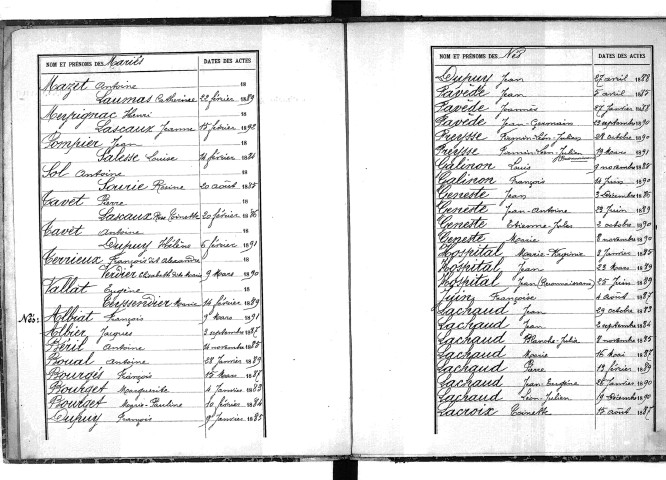 NOM ET PRÉNOMS DES Mariés DATES DES ACTES
Mazet Antoine 18
Laumas Catherine 22 février 1889
Meyrignac Henri 18
Lascaux Jeanne 15 février 1892
Pompier Jean 18
Salesse Louise 14 février 1884
Sol Antoine 18
Sourie Rosine 20 août 1885
Tavet Pierre 18
Lascaux Rose Toinette 20 février 1886
Tavet Antoine 18
Dupuy Hélène 6 février 1891
Terrieux François dit Alexandre 18
Verdier Elisabeth dite Marie 9 Mars 1890
Vallat Eugène 18
Teyssendier Marie 14 février 1889
Nés: Albiat François 9 Mars 1891
Albier Jacques 2 septembre 1887
Béril Antoine 21 novembre 1885
Boual Antoine 28 Janvier 1889
Bourgès François 15 Mars 1887
Bourget Marguerite 4 Janvier 1883
Bourget Marie-Pauline 10 février 1884
Dupuy François 9 Janvier 1885
NOM ET PRÉNOMS DES Nés DATES DES ACTES
Dupuy Jean 27 avril 1888
Favède Jean 5 avril 1885
Favède Jeannès 27 Janvier 1888
Favède Jean-Germain 22 septembre 1890
Freysse Firmin-Léon-Julien 28 octobre 1890
Freysse Firmin-Léon-Julien 19 Mars 1891
Galinon Louis 9 novembre 1888
Galinon François 14 Juin 1890
Geneste Jean 3 Décembre 1886
Geneste Jean-Antoine 29 Juin 1889
Geneste Etienne-Jules 2 octobre 1890
Geneste Marie 8 novembre 1890
Hospital Marie-Eugénie 2 Janvier 1885
Hospital Jean 23 Mars 1889
Hospital Jean (Reconnaissance) 25 Juin 1889
Juin Françoise 4 août 1887
Lachaud Jean 29 octobre 1883
Lachaud Jean 2 septembre 1884
Lachaud Blanche-Julia 8 novembre 1885
Lachaud Marie 16 Mai 1887
Lachaud Pierre 12 février 1889
Lachaud Jean-Eugène 25 Janvier 1890
Lachaud Léon-Julien 19 Décembre 1890
Lacroix Toinette 15 août 1887